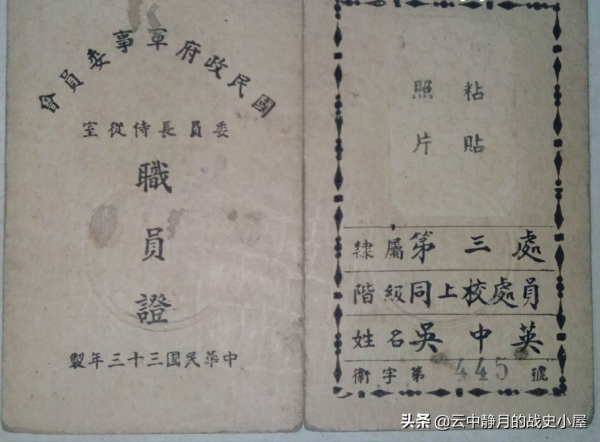 國民政府軍事委員會
委員長侍從室
職員證
中華民國三十三年製
粘貼
照片
隸屬第三處
階級同上校處員
姓名吳中英
衛字第445號
头条 @云中静月的战史小屋